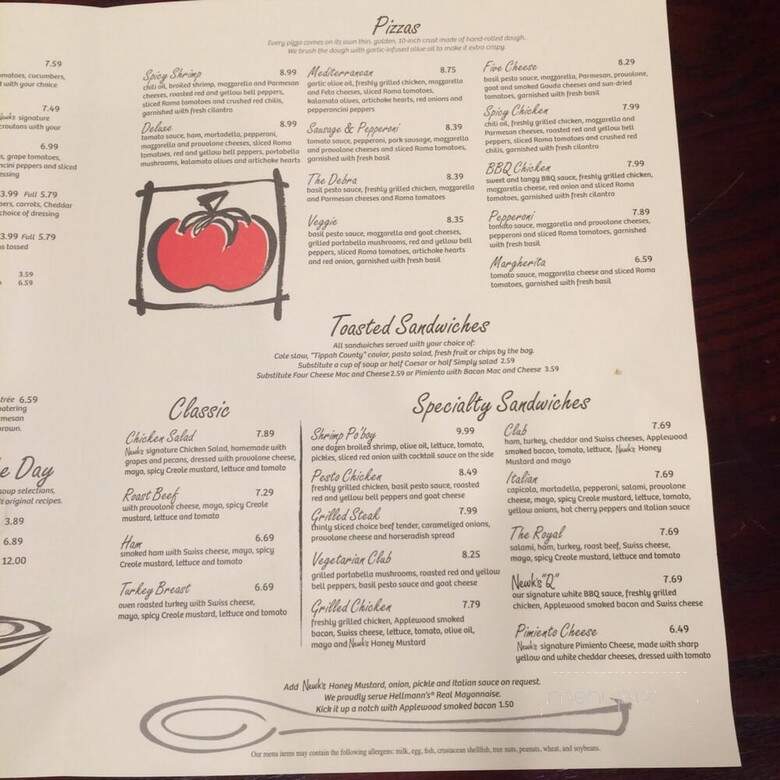 7.59
matoes, cucumbers,
d with your choice
7.49
Newk's signature
croutons with your
6.99
s, grape tomatoes,
ncini peppers and sliced
essing
3.99 Full 5.79
pers, carrots, Cheddar
choice of dressing
3.99 Full 5.79
as tossed
3.59
6.59
trée 6.59
watering
mesan
rown.
e Day
soup selections,
ft original recipes.
3.89
6.89
12.00
Pizzas
Every pizza comes on its own thin, golden, 10-inch crust made of hand-rolled dough.
We brush the dough with garlic-infused olive oil to make it extra crispy.
Spicy Shrimp 8.99
chili oil, broiled shrimp, mozzarella and Parmesan
cheeses, roasted red and yellow bell peppers,
sliced Roma tomatoes and crushed red chilis,
garnished with fresh cilantro
Deluxe 8.99
tomato sauce, ham, mortadella, pepperoni,
mozzarella and provolone cheeses, sliced Roma
tomatoes, red and yellow bell peppers, portobella
mushrooms, kalamata olives and artichoke hearts
Mediterranean 8.75
garlic olive oil, freshly grilled chicken, mozzarella
and Feta cheeses, sliced Roma tomatoes,
kalamata olives, artichoke hearts, red onions and
pepperoncini peppers
Sausage & Pepperoni 8.39
tomato sauce, pepperoni, pork sausage, mozzarella
and provolone cheeses and sliced Roma tomatoes,
garnished with fresh basil
The Debra 8.39
basil pesto sauce, freshly grilled chicken, mozzarella
and Parmesan cheeses and Roma tomatoes
Veggie 8.35
basil pesto sauce, mozzarella and goat cheeses,
grilled portabella mushrooms, red and yellow bell
peppers, sliced Roma tomatoes, artichoke hearts
and red onion, garnished with fresh basil
Five Cheese 8.29
basil pesto sauce, mozzarella, Parmesan, provolone,
goat and smoked Gouda cheeses and sun-dried
tomatoes, garnished with fresh basil
Spicy Chicken 7.99
chili oil, freshly grilled chicken, mozzarella and
Parmesan cheeses, roasted red and yellow bell
peppers, sliced Roma tomatoes and crushed red
chilis, garnished with fresh cilantro
BBQ Chicken 7.99
sweet and tangy BBQ sauce, freshly grilled chicken,
mozzarella cheese, red onion and sliced Roma
tomatoes, garnished with fresh cilantro
Pepperoni 7.89
tomato sauce, mozzarella and provolone cheeses,
pepperoni and sliced Roma tomatoes, garnished
with fresh basil
Margherita 6.59
tomato sauce, mozzarella cheese and sliced Roma
tomatoes, garnished with fresh basil
Toasted Sandwiches
All sandwiches served with your choice of:
Cole slaw, "Tippah County" caviar, pasta salad, fresh fruit or chips by the bag.
Substitute a cup of soup or half Caesar or half Simply salad 2.59
Substitute Four Cheese Mac and Cheese 2.59 or Pimiento with Bacon Mac and Cheese 3.59
Classic
Chicken Salad 7.89
Newk's signature Chicken Salad, homemade with
grapes and pecans, dressed with provolone cheese,
mayo, spicy Creole mustard, lettuce and tomato
Roast Beef 7.29
with provolone cheese, mayo, spicy Creole
mustard, lettuce and tomato
Ham 6.69
smoked ham with Swiss cheese, mayo, spicy
Creole mustard, lettuce and tomato
Turkey Breast 6.69
oven roasted turkey with Swiss cheese,
mayo, spicy Creole mustard, lettuce and tomato
Specialty Sandwiches
Shrimp Po'boy 9.99
one dozen broiled shrimp, olive oil, lettuce, tomato,
pickles, sliced red onion with cocktail sauce on the side
Pesto Chicken 8.49
freshly grilled chicken, basil pesto sauce, roasted
red and yellow bell peppers and goat cheese
Grilled Steak 7.99
thinly sliced choice beef tender, caramelized onions,
provolone cheese and horseradish spread
Vegetarian Club 8.25
grilled portabella mushrooms, roasted red and yellow
bell peppers, basil pesto sauce and goat cheese
Grilled Chicken 7.79
freshly grilled chicken, Applewood smoked
bacon, Swiss cheese, lettuce, tomato, olive oil,
mayo and Newk's Honey Mustard
Club 7.69
ham, turkey, cheddar and Swiss cheeses, Applewood
smoked bacon, tomato, lettuce, Newk's Honey
Mustard and mayo
Italian 7.69
capicola, mortadella, pepperoni, salami, provolone
cheese, mayo, spicy Creole mustard, lettuce, tomato,
yellow onions, hot cherry peppers and Italian sauce
The Royal 7.69
salami, ham, turkey, roast beef, Swiss cheese,
mayo, spicy Creole mustard, lettuce and tomato
Newk's "Q" 7.69
our signature white BBQ sauce, freshly grilled
chicken, Applewood smoked bacon and Swiss cheese
Pimiento Cheese 6.49
Newk's signature Pimiento Cheese, made with sharp
yellow and white cheddar cheeses, dressed with tomato
Add Newk's Honey Mustard, onion, pickle and Italian sauce on request.
We proudly serve Hellmann's® Real Mayonnaise.
Kick it up a notch with Applewood smoked bacon 1.50
Our menu items may contain the following allergens: milk, egg, fish, crustacean shellfish, tree nuts, peanuts, wheat, and soybeans.